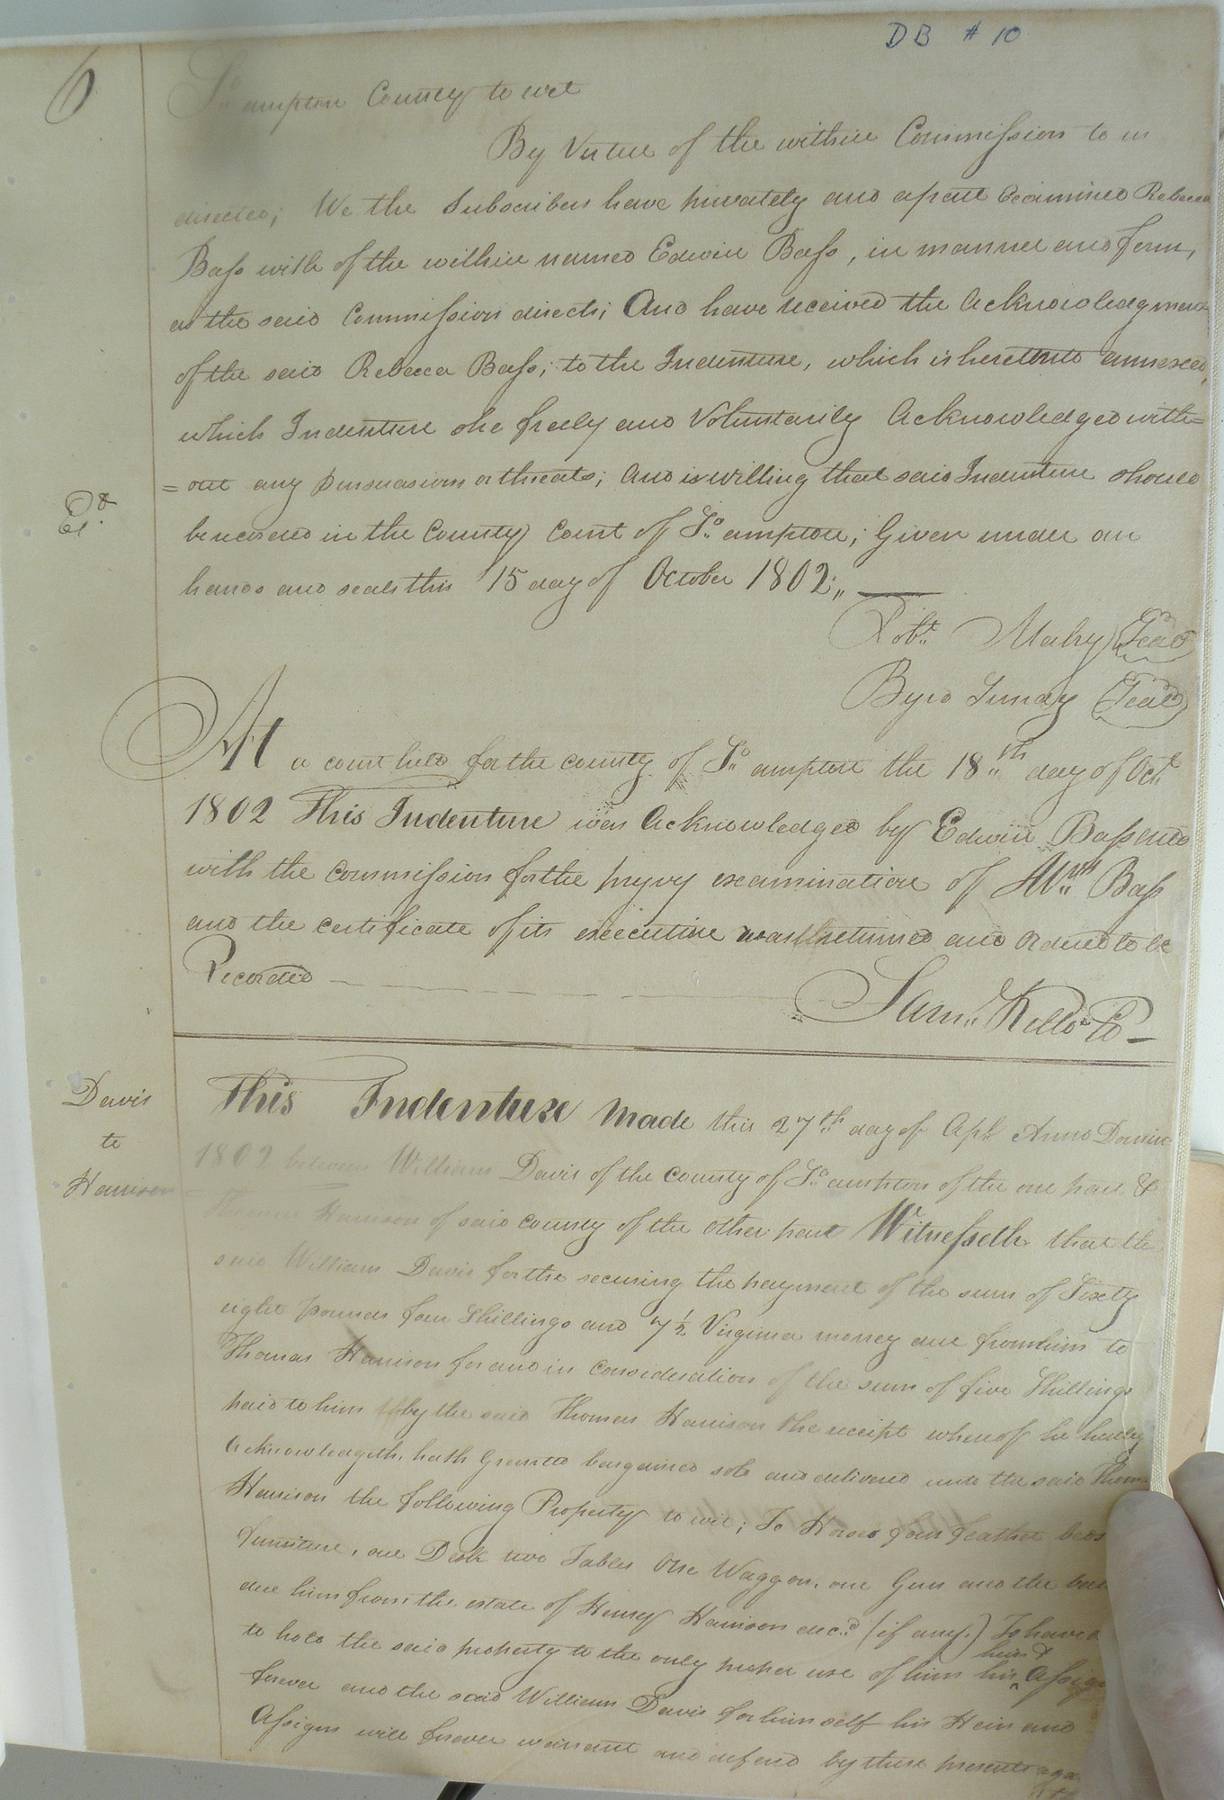 DB # 10
6
So. ampton County to wit
By Virtue of the within Commission to us
directed; We the Subscribers have privately and apart Examined Rebecca
Bass wife of the within named Edwin Bass, in manner and form,
as the said Commission directs; And have received the Acknowledgment
of the said Rebecca Bass; to the Indenture, which is hereunto annexed,
which Indenture she freely and Voluntarily Acknowledged with=
=out any persuasions or threats; And is willing that said Indenture should
be recorded in the County Court of So. ampton; Given under our
hands and seals this 15 day of October 1802.,,
Robt. Mabry (Seal)
(Seal)
At a court held for the county of So. ampton the 18th day of Octr.
1802 This Indenture was Acknowledged by Edwin Bass and
with the Commission for the privy examination of Bass
and the certificate of its execution was returned and ordered to be
Recorded
Saml. Kello
Davis
to
Harrison
This Indenture Made this 27th day of Apl. Anno Domini
1802 between William Davis of the county of So. ampton of the one part &
Thomas Harrison of said county of the other part Witnesseth that the
said William Davis for the securing the payment of the sum of Sixty
eight pounds four Shillings and 7½ Virginia money due from him to
Thomas Harrison for and in Consideration of the sum of five Shillings
paid to him by the said Thomas Harrison the receipt whereof he hereby
Acknowledgeth, hath Granted bargained sold and delivered unto the said Thomas
Harrison the following Property to wit; feather beds
furniture, one Desk two Tables One Waggon, one Gun and the
due him from the estate of Henry Harrison decd. (if any.) To have &
to hold the said property to the only proper use of him his heirs & Assigns
forever and the said William Davis for himself his Heirs and
Assigns will forever warrant and defend by these presents